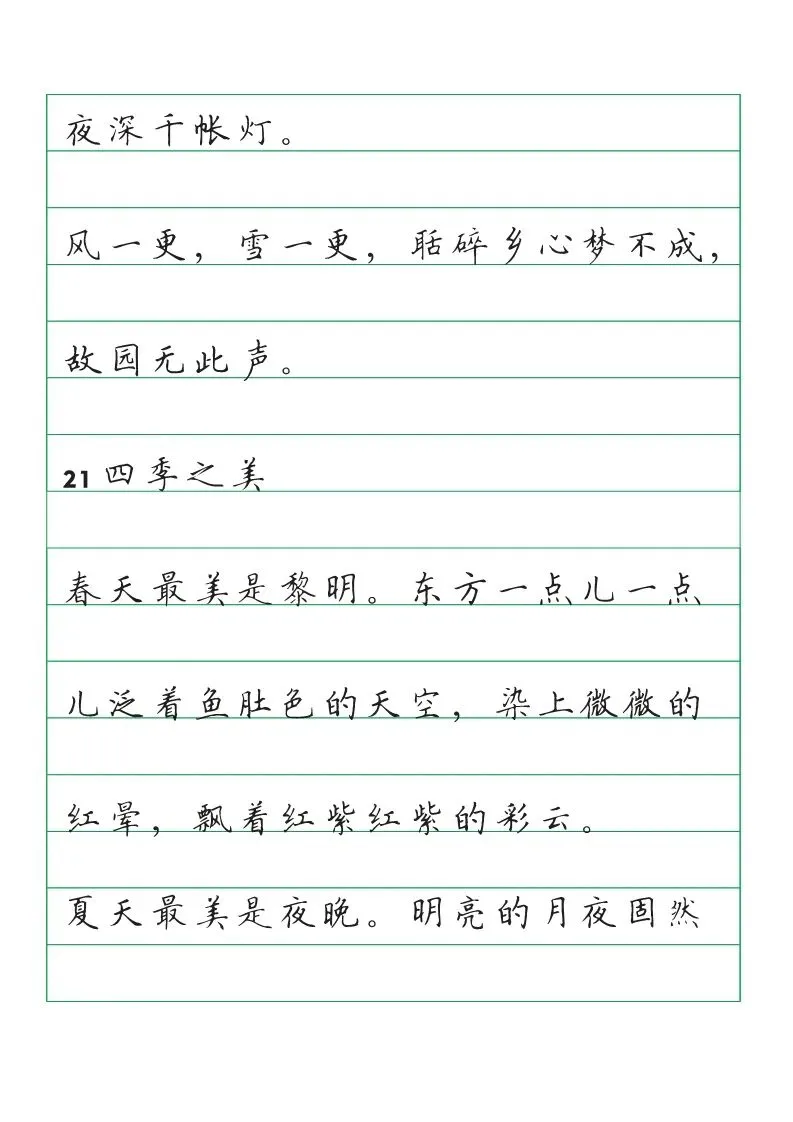 夜深千帐灯。
风一更，雪一更，聒碎乡心梦不成，
故园无此声。
21 四季之美
春天最美是黎明。东方一点儿一点
儿泛着鱼肚色的天空，染上微微的
红晕，飘着红紫红紫的彩云。
夏天最美是夜晚。明亮的月夜固然